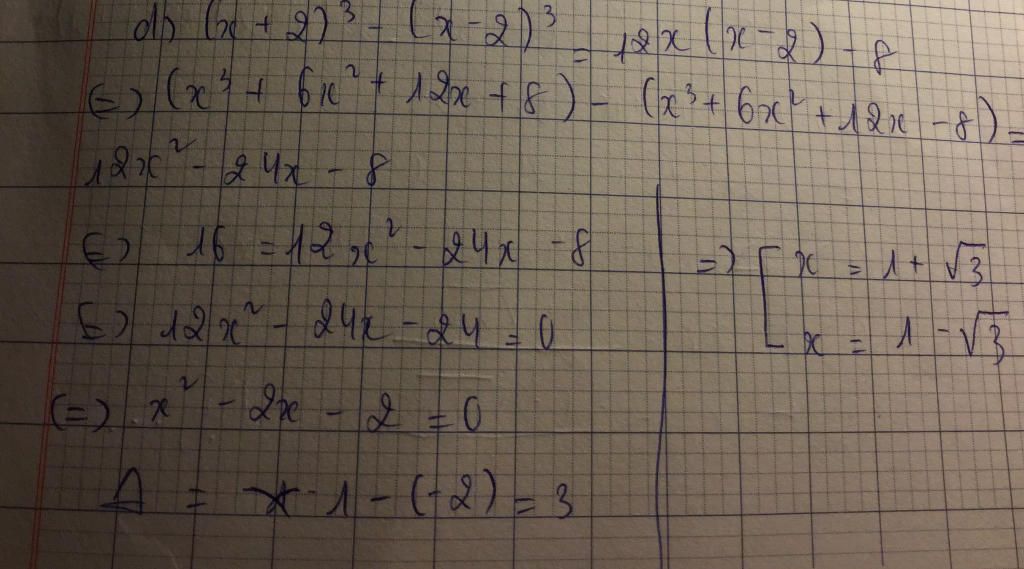 d) (x + 2)³ - (x - 2)³ = 12x (x - 2) - 8
(=) (x³ + 6x² + 12x + 8) - (x³ + 6x² + 12x - 8) =
12x² - 24x - 8
(=) 16 = 12x² - 24x - 8
(=) 12x² - 24x - 24 = 0
(=) x² - 2x - 2 = 0
Δ = 1 - (-2) = 3
=) [ x = 1 + √3
x = 1 - √3